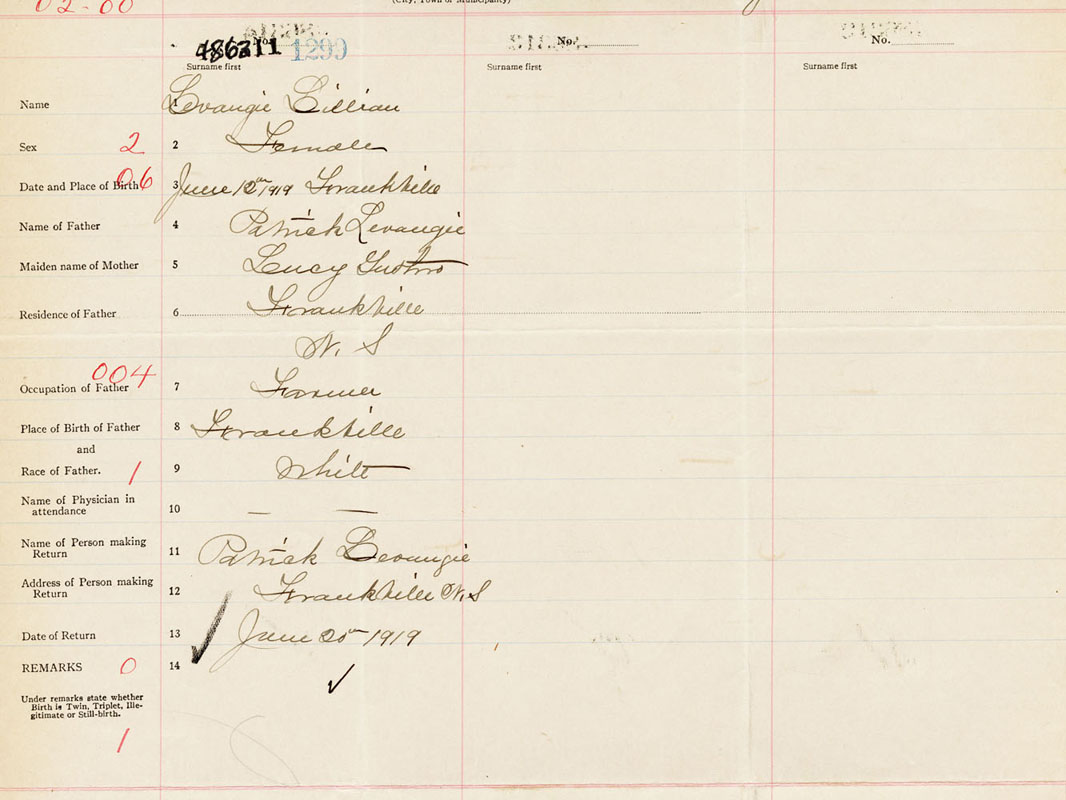 02-00
(City, Town or Municipality)
No. 1299
No.
No.
Surname first
Surname first
Surname first
Name 1 Levangie Lillian
Sex 2 2 Female
Date and Place of Birth 06 3 June 12th 1919 Frankville
Name of Father 4 Patrick Levangie
Maiden name of Mother 5 Lucy
Residence of Father 6 Frankville
N. S
Occupation of Father 004 7 Farmer
Place of Birth of Father 8 Frankville
and
Race of Father. 1 9 White
Name of Physician in
attendance 10 — —
Name of Person making
Return 11 Patrick Levangie
Address of Person making
Return 12 Frankville N.S
Date of Return 13 June 20th 1919
REMARKS 0 14
Under remarks state whether
Birth is Twin, Triplet, Ille-
gitimate or Still-birth.
1